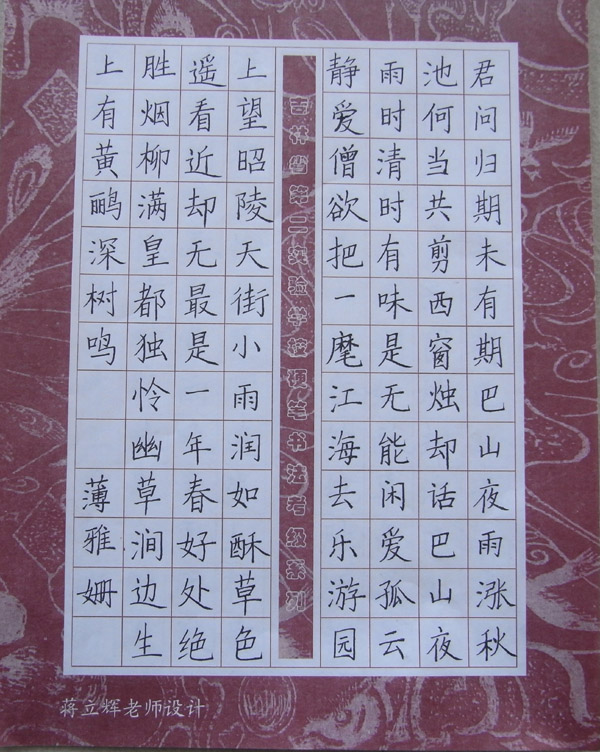 君问归期未有期巴山夜雨涨秋
池何当共剪西窗烛却话巴山夜
雨时清时有味是无能闲爱孤云
静爱僧欲把一麾江海去乐游园
吉林省第二实验学校硬笔书法考级系列
上望昭陵天街小雨润如酥草色
遥看近却无最是一年春好处绝
胜烟柳满皇都独怜幽草涧边生
上有黄鹂深树鸣 薄雅姗
蒋立辉老师设计